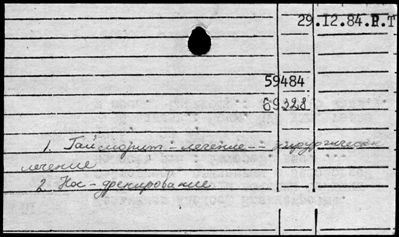 29.12.84.P.T
59484
69228
1. Гайморит - лечение - хирургическое
лечение
2. Нос - дренирование